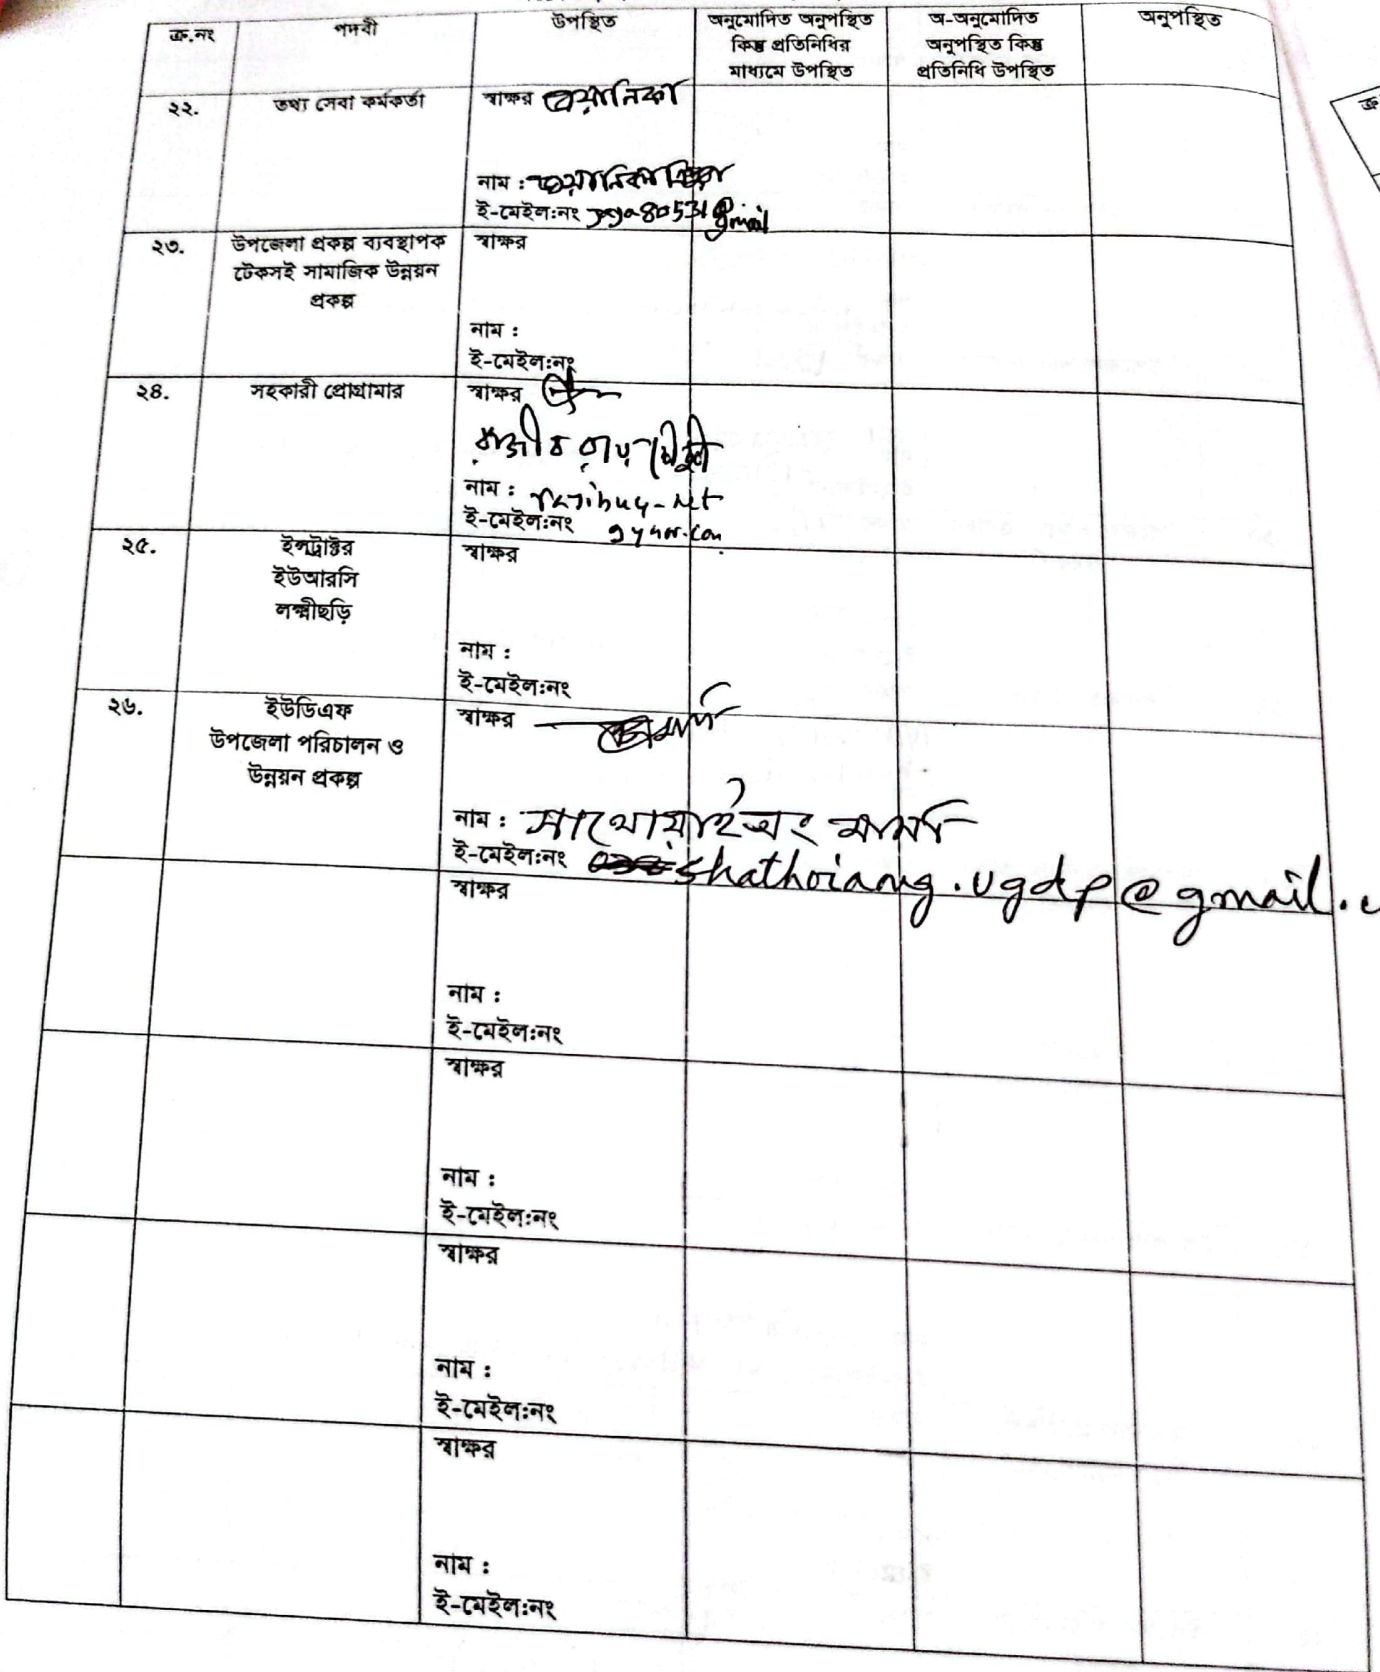 ক্র.নং
পদবী
উপস্থিত
অনুমোদিত অনুপস্থিত
কিন্তু প্রতিনিধির
মাধ্যমে উপস্থিত
অ-অনুমোদিত
অনুপস্থিত কিন্তু
প্রতিনিধি উপস্থিত
অনুপস্থিত
২২.
তথ্য সেবা কর্মকর্তা
স্বাক্ষর
নাম :
ই-মেইল:নং
gmail
২৩.
উপজেলা প্রকল্প ব্যবস্থাপক
টেকসই সামাজিক উন্নয়ন
প্রকল্প
স্বাক্ষর
নাম :
ই-মেইল:নং
২৪.
সহকারী প্রোগ্রামার
স্বাক্ষর
নাম :
ই-মেইল:নং
২৫.
ইন্সট্রাক্টর
ইউআরসি
লক্ষ্মীছড়ি
স্বাক্ষর
নাম :
ই-মেইল:নং
২৬.
ইউডিএফ
উপজেলা পরিচালন ও
উন্নয়ন প্রকল্প
স্বাক্ষর
নাম : সাথোয়াইঅং মারমা
ই-মেইল:নং shathoiang.ugdp@gmail.c
স্বাক্ষর
নাম :
ই-মেইল:নং
স্বাক্ষর
নাম :
ই-মেইল:নং
স্বাক্ষর
নাম :
ই-মেইল:নং
স্বাক্ষর
নাম :
ই-মেইল:নং